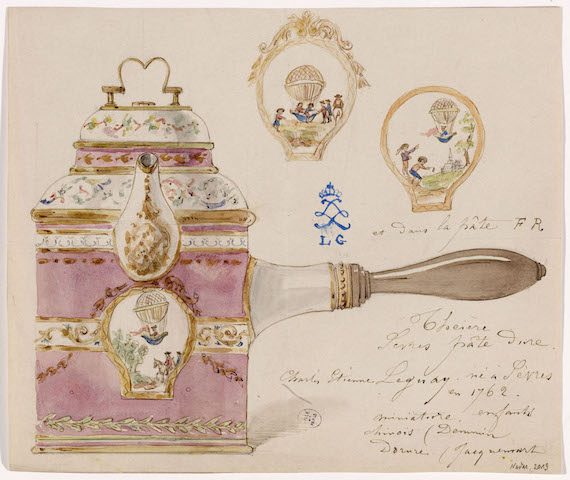 L G
et dans la pâte F R
Théière
Sevres pâte dure.
Charles Etienne Leguay né à Sèvres
en 1762
miniature enfants
chinois (Demmin
Dorure / Jacquemart
Nadar, 2003